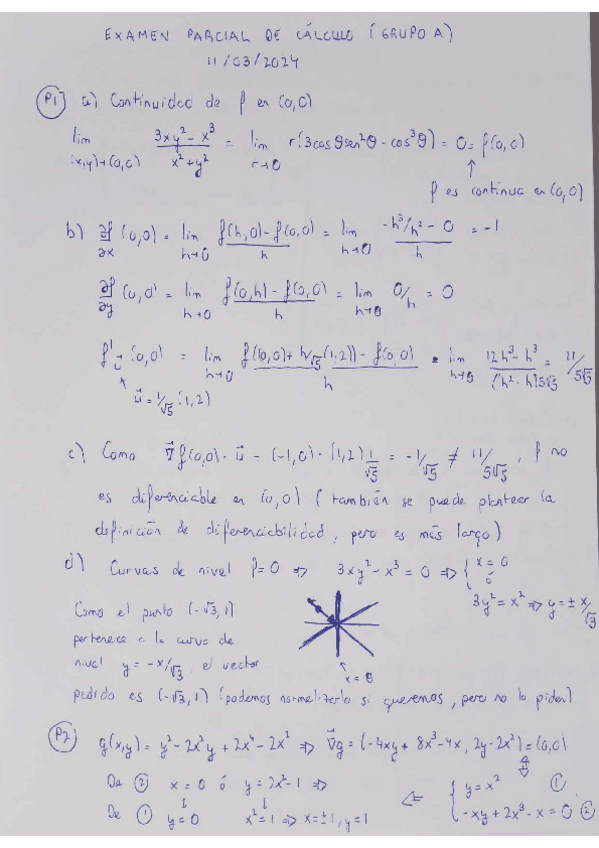 EXAMEN PARCIAL DE CÁLCULO (GRUPO A)
11/03/2024
P1 a) Continuidad de f en (0,0)
lim (x,y)→(0,0) (3xy² - x³)/(x² + y²) = lim r→0 r(3cosθsen²θ - cos³θ) = 0 = f(0,0)
↑
f es continua en (0,0)
b) ∂f/∂x (0,0) = lim h→0 (f(h,0) - f(0,0))/h = lim h→0 (-h³/h² - 0)/h = -1
∂f/∂y (0,0) = lim h→0 (f(0,h) - f(0,0))/h = lim h→0 0/h = 0
f'u⃗ (0,0) = lim h→0 (f((0,0) + h/√5 (1,2)) - f(0,0))/h = lim h→0 (12h³ - h³)/((h²·h)5√5) = 11/5√5
u⃗ = 1/√5 (1,2)
c) Como ∇⃗f(0,0)·u⃗ = (-1,0)·(1,2) 1/√5 = -1/√5 ≠ 11/5√5, f no
es diferenciable en (0,0) (también se puede plantear la
definición de diferenciabilidad, pero es más largo)
d) Curvas de nivel f=0 ⇒ 3xy² - x³ = 0 ⇒ { x = 0
ó
3y² = x² ⇒ y = ± x/√3
Como el punto (-√3, 1)
pertenece a la curva de
nivel y = -x/√3, el vector
x = 0
pedido es (-√3, 1) (podemos normalizarlo si queremos, pero no lo piden)
P2 g(x,y) = y² - 2x²y + 2x⁴ - 2x² ⇒ ∇⃗g = (-4xy + 8x³ - 4x, 2y - 2x²) = (0,0)
De ② x = 0 ó y = 2x² - 1 ⇒ ⇐ { y = x² ①
De ① y = 0 x² = 1 ⇒ x = ±1, y = 1 -xy + 2x³ - x = 0 ②